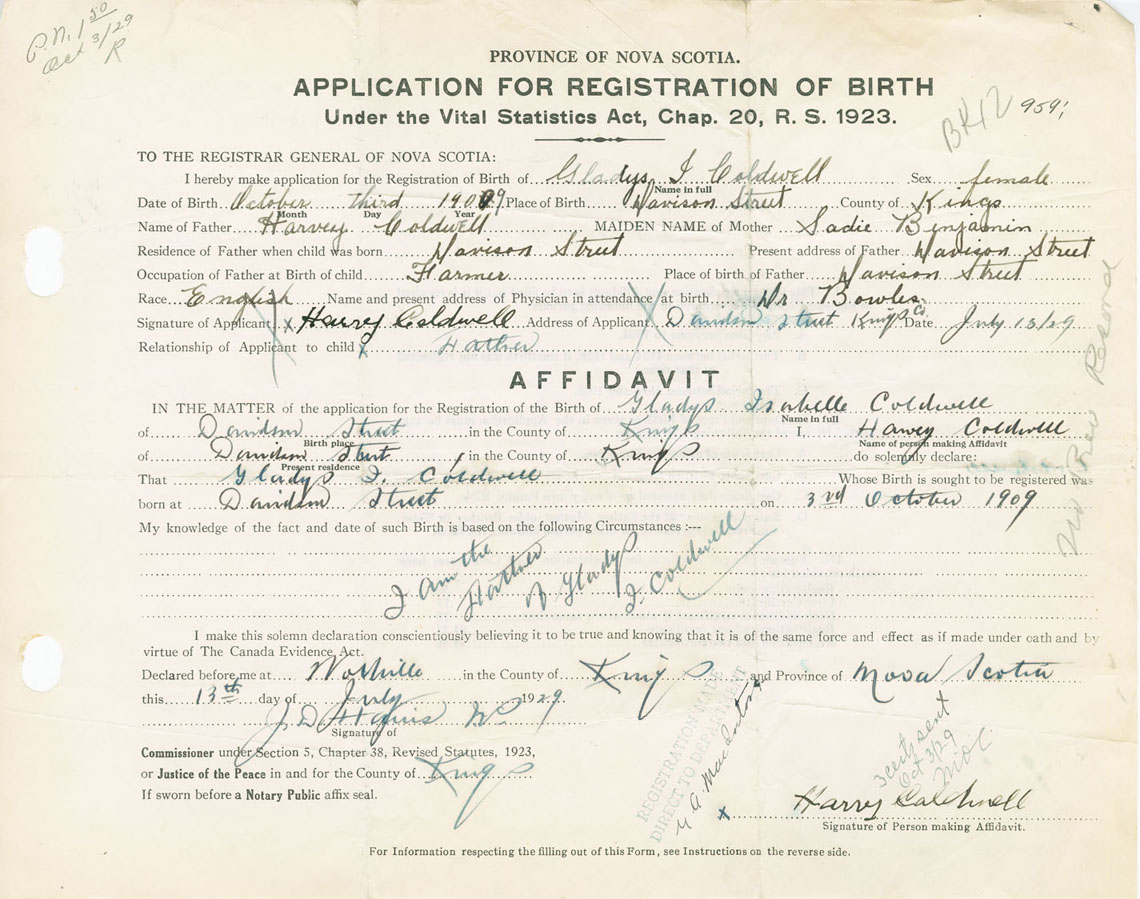 P.N. 1.50
Oct 3/29
R
PROVINCE OF NOVA SCOTIA.
APPLICATION FOR REGISTRATION OF BIRTH
Under the Vital Statistics Act, Chap. 20, R. S. 1923.
BK12 959
TO THE REGISTRAR GENERAL OF NOVA SCOTIA:
I hereby make application for the Registration of Birth of Gladys I Coldwell Sex female
Name in full
Date of Birth October third 1909 Place of Birth Davison Street County of Kings
Month Day Year
Name of Father Harvey Coldwell MAIDEN NAME of Mother Sadie Benjamin
Residence of Father when child was born Davison Street Present address of Father Davison Street
Occupation of Father at Birth of child Farmer Place of birth of Father Davison Street
Race English Name and present address of Physician in attendance at birth Dr Bowles
Signature of Applicant x Harvey Coldwell Address of Applicant Davidson Street Kings Co. Date July 13/29
Relationship of Applicant to child x Father
AFFIDAVIT
IN THE MATTER of the application for the Registration of the Birth of Gladys Isabelle Coldwell
Name in full
of Davidson Street in the County of Kings I, Harvey Coldwell
Birth place Name of person making Affidavit
of Davidson Street, in the County of Kings do solemnly declare:
Present residence
That Gladys I. Coldwell Whose Birth is sought to be registered was
born at Davidson Street on 3rd October 1909
My knowledge of the fact and date of such Birth is based on the following Circumstances :—
I am the
Father
of Gladys
I. Coldwell
I make this solemn declaration conscientiously believing it to be true and knowing that it is of the same force and effect as if made under oath and by
virtue of The Canada Evidence Act.
Declared before me at Wolfville in the County of Kings and Province of Nova Scotia
this 13th day of July 1929
Signature of
Commissioner under Section 5, Chapter 38, Revised Statutes, 1923,
or Justice of the Peace in and for the County of Kings
If sworn before a Notary Public affix seal.
REGISTRATION MADE
DIRECT TO DEPARTMENT
3 certs sent
Oct 3/29
x Harvey Coldwell
Signature of Person making Affidavit.
For Information respecting the filling out of this Form, see Instructions on the reverse side.